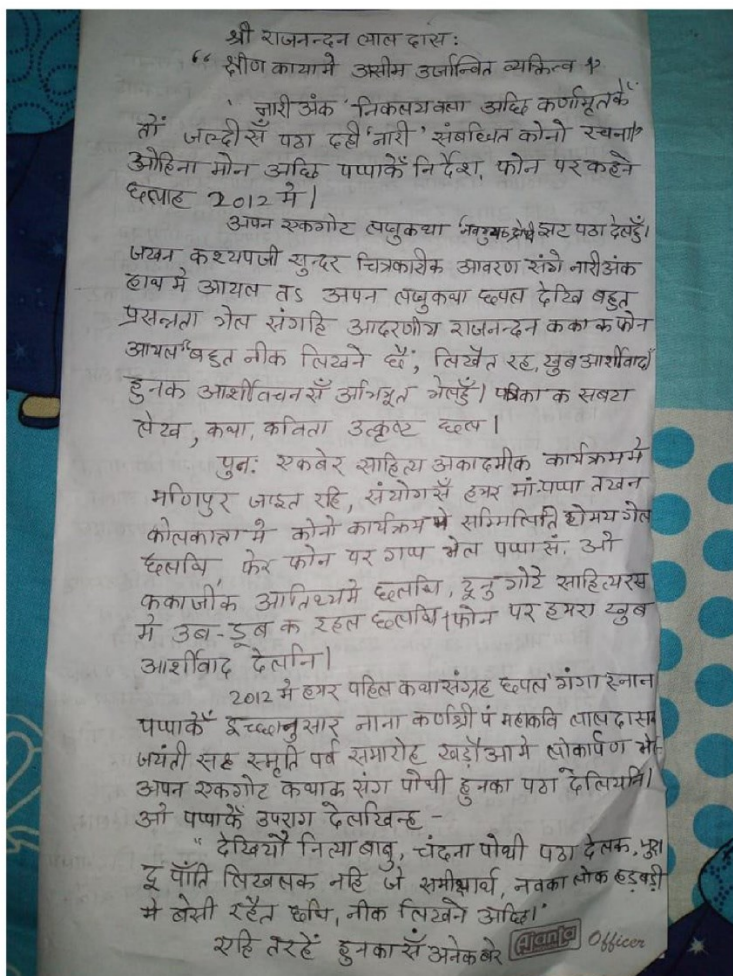 श्री राजनन्दन लाल दास:
“ क्षीण कायामे असीम उर्जान्वित व्यक्तित्व ”
' नारी अंक ' निकलयवला अछि कर्णामृतकेँ
तोँ जल्दीसँ पठा दही 'नारी' संबंधित कोनो रचना
ओहिना मोन अछि पप्पाकेँ निर्देश, फोन पर कहने
छलाह 2012 मे।
अपन एकगोट लघुकथा झट पठा देलहुँ।
जखन कश्यपजी सुन्दर चित्रकारीक आवरण संगे नारी अंक
हाथ मे आयल तऽ अपन लघुकथा छपल देखि बहुत
प्रसन्नता भेल संगहि आदरणीय राजनन्दन कका क फोन
आयल “बहुत नीक लिखने छैं, लिखैत रह, खुब आर्शीवाद”
हुनक आर्शीवचन सँ अभिभूत भेलहुँ। पत्रिका क सबटा
लेख, कथा, कविता उत्कृष्ट छल।
पुन: एकबेर साहित्य अकादमीक कार्यक्रम मे
मणिपुर जाइत रहि, संयोग सँ हमर माँ-पप्पा तखन
कोलकाता मे कोनो कार्यक्रम मे सम्मिलित होमय गेल
छलथि, फेर फोन पर गप्प भेल पप्पा सं. ओ
ककाजीक आतिथ्यमे छलथि, दूनु गोटे साहित्यरस
मे उब-डूब क रहल छलथि। फोन पर हमरा खुब
आर्शीवाद देलनि।
2012 मे हमर पहिल कथासंग्रह छपल 'गंगा स्नान
पप्पाकेँ इच्छानुसार नाना कर्णश्री पं महाकवि लालदासक
जयंती सह स्मृति पर्व समारोह खड़ौआ मे लोकार्पण भेल
अपन एकगोट कथाक संग पोथी हुनका पठा देलियनि।
ओ पप्पाकेँ उपराग देलखिन्ह -
“ देखियौ नित्या बाबु, चंदना पोथी पठा देलक,
दू पाँति लिखलक नहि जे समीक्षार्थ, नवका लोक हड़बड़ी
मे बेसी रहैत छथि, नीक लिखने अछि।'
एहि तरहेँ हुनका सँ अनेक बेर Ajanta Officer